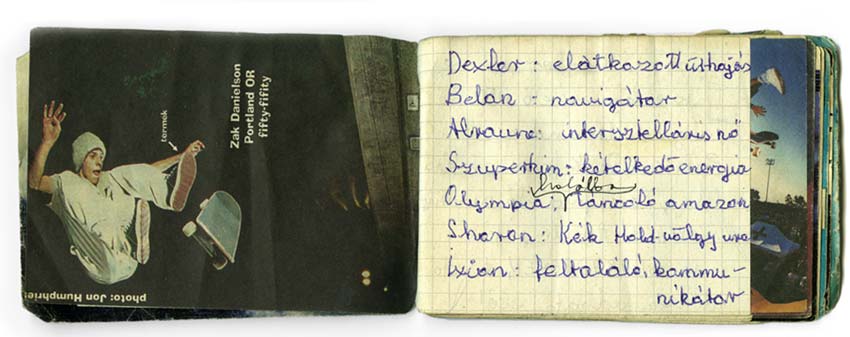 termék
Zak Danielson
Portland OR
fifty-fifity
photo: Jon Humphries
Dexter: elátkozott űrhajós
Belan: navigátor
Alraune: intersztelláris nő
Szuperkim: kételkedő energia
halálba
Olympia: táncoló amazon
Sharon: Kék Hold-völgy ura
Ixion: feltaláló, kommu-
nikátor